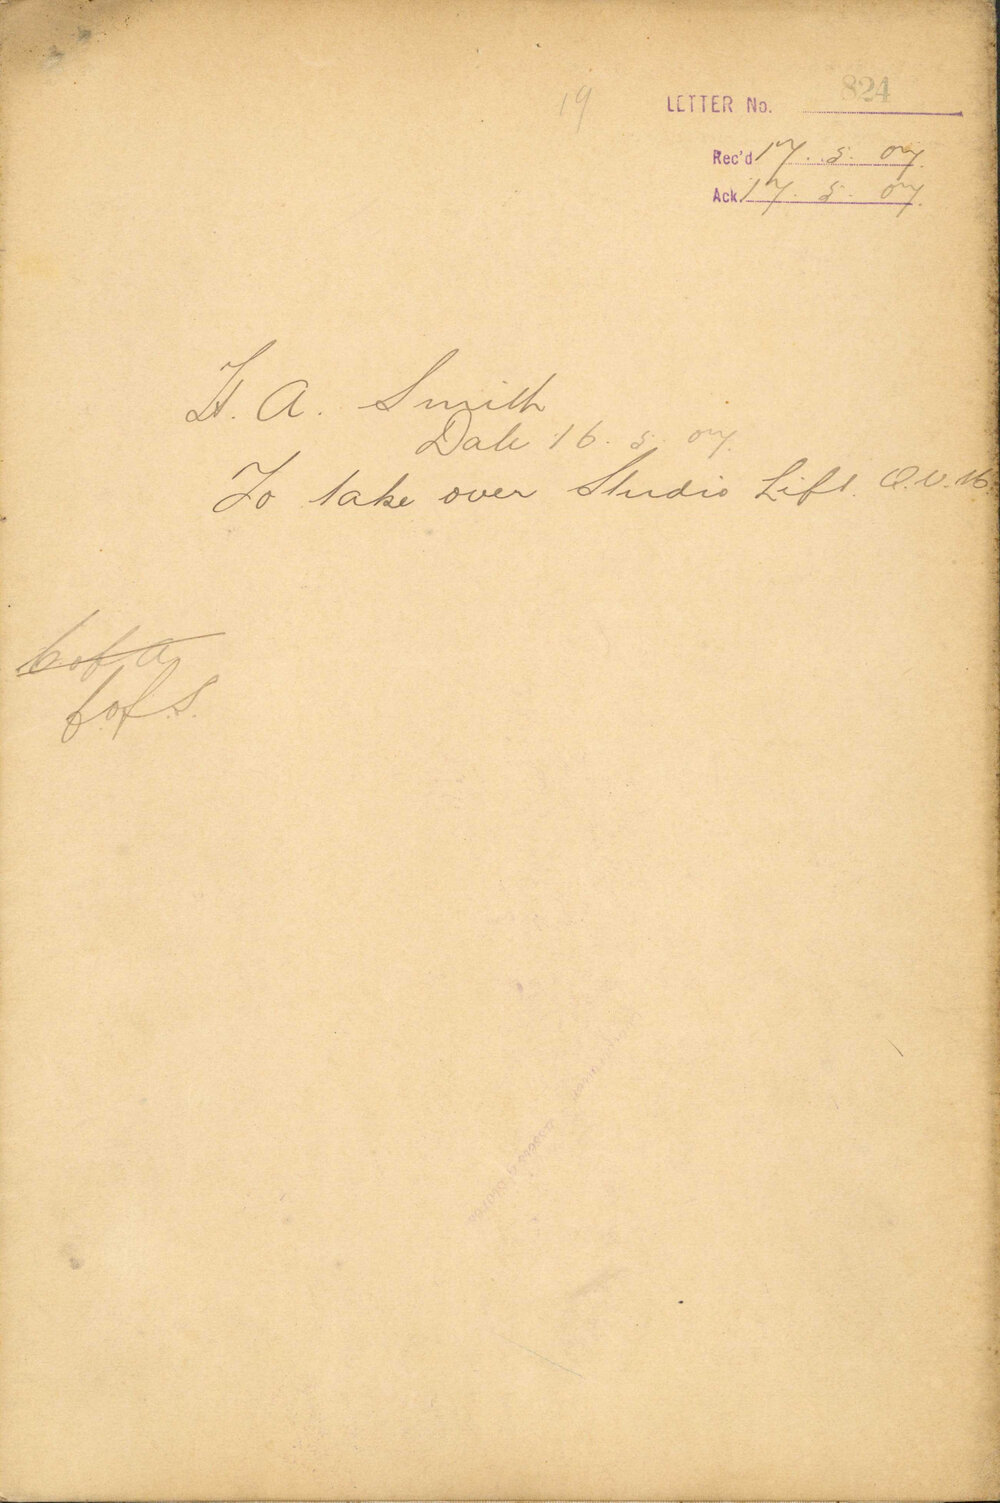 19
LETTER No. 824
Rec'd 17. 5. 07.
Ack. 17. 5. 07.
H. A. Smith
Date 16. 5. 07.
To take over Studio Lift. Q.V.M.
C of A
C.of.S.